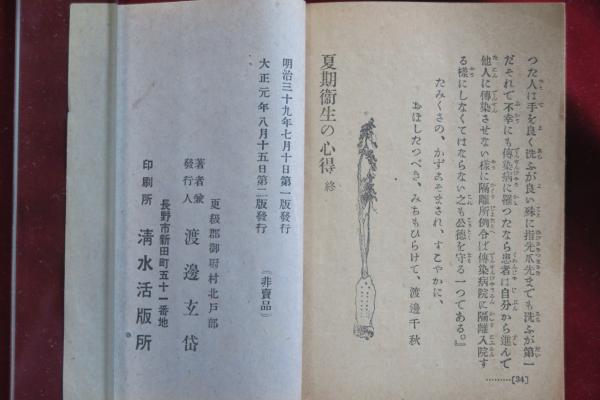 つた人は手を良く洗ふが良い殊に指先爪先までも洗ふが第一
だそれで不幸にも傳染病に罹つたなら患者は自分から進んで
他人に傳染させない樣に隔離所例令ば傳染病院に隔離入院す
る樣にしなくてはならない之も公德を守る一つてある。』
たみくさの、かずさへまされ、すこやかに、
おほしたつべき、みちもひらけて、渡邊千秋
夏期衞生の心得 終
………[34]
明治三十九年七月十日第一版發行
大正元年八月十五日第二版發行
(非賣品)
更級郡御厨村北戸部
著者兼
發行人 渡邊玄岱
長野市新田町五十一番地
印刷所 淸水活版所